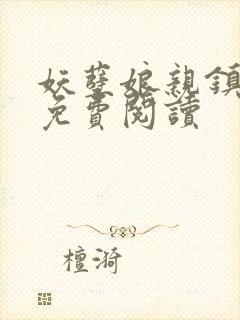 妖孽娘親鎮
免費閱讀
檀漪